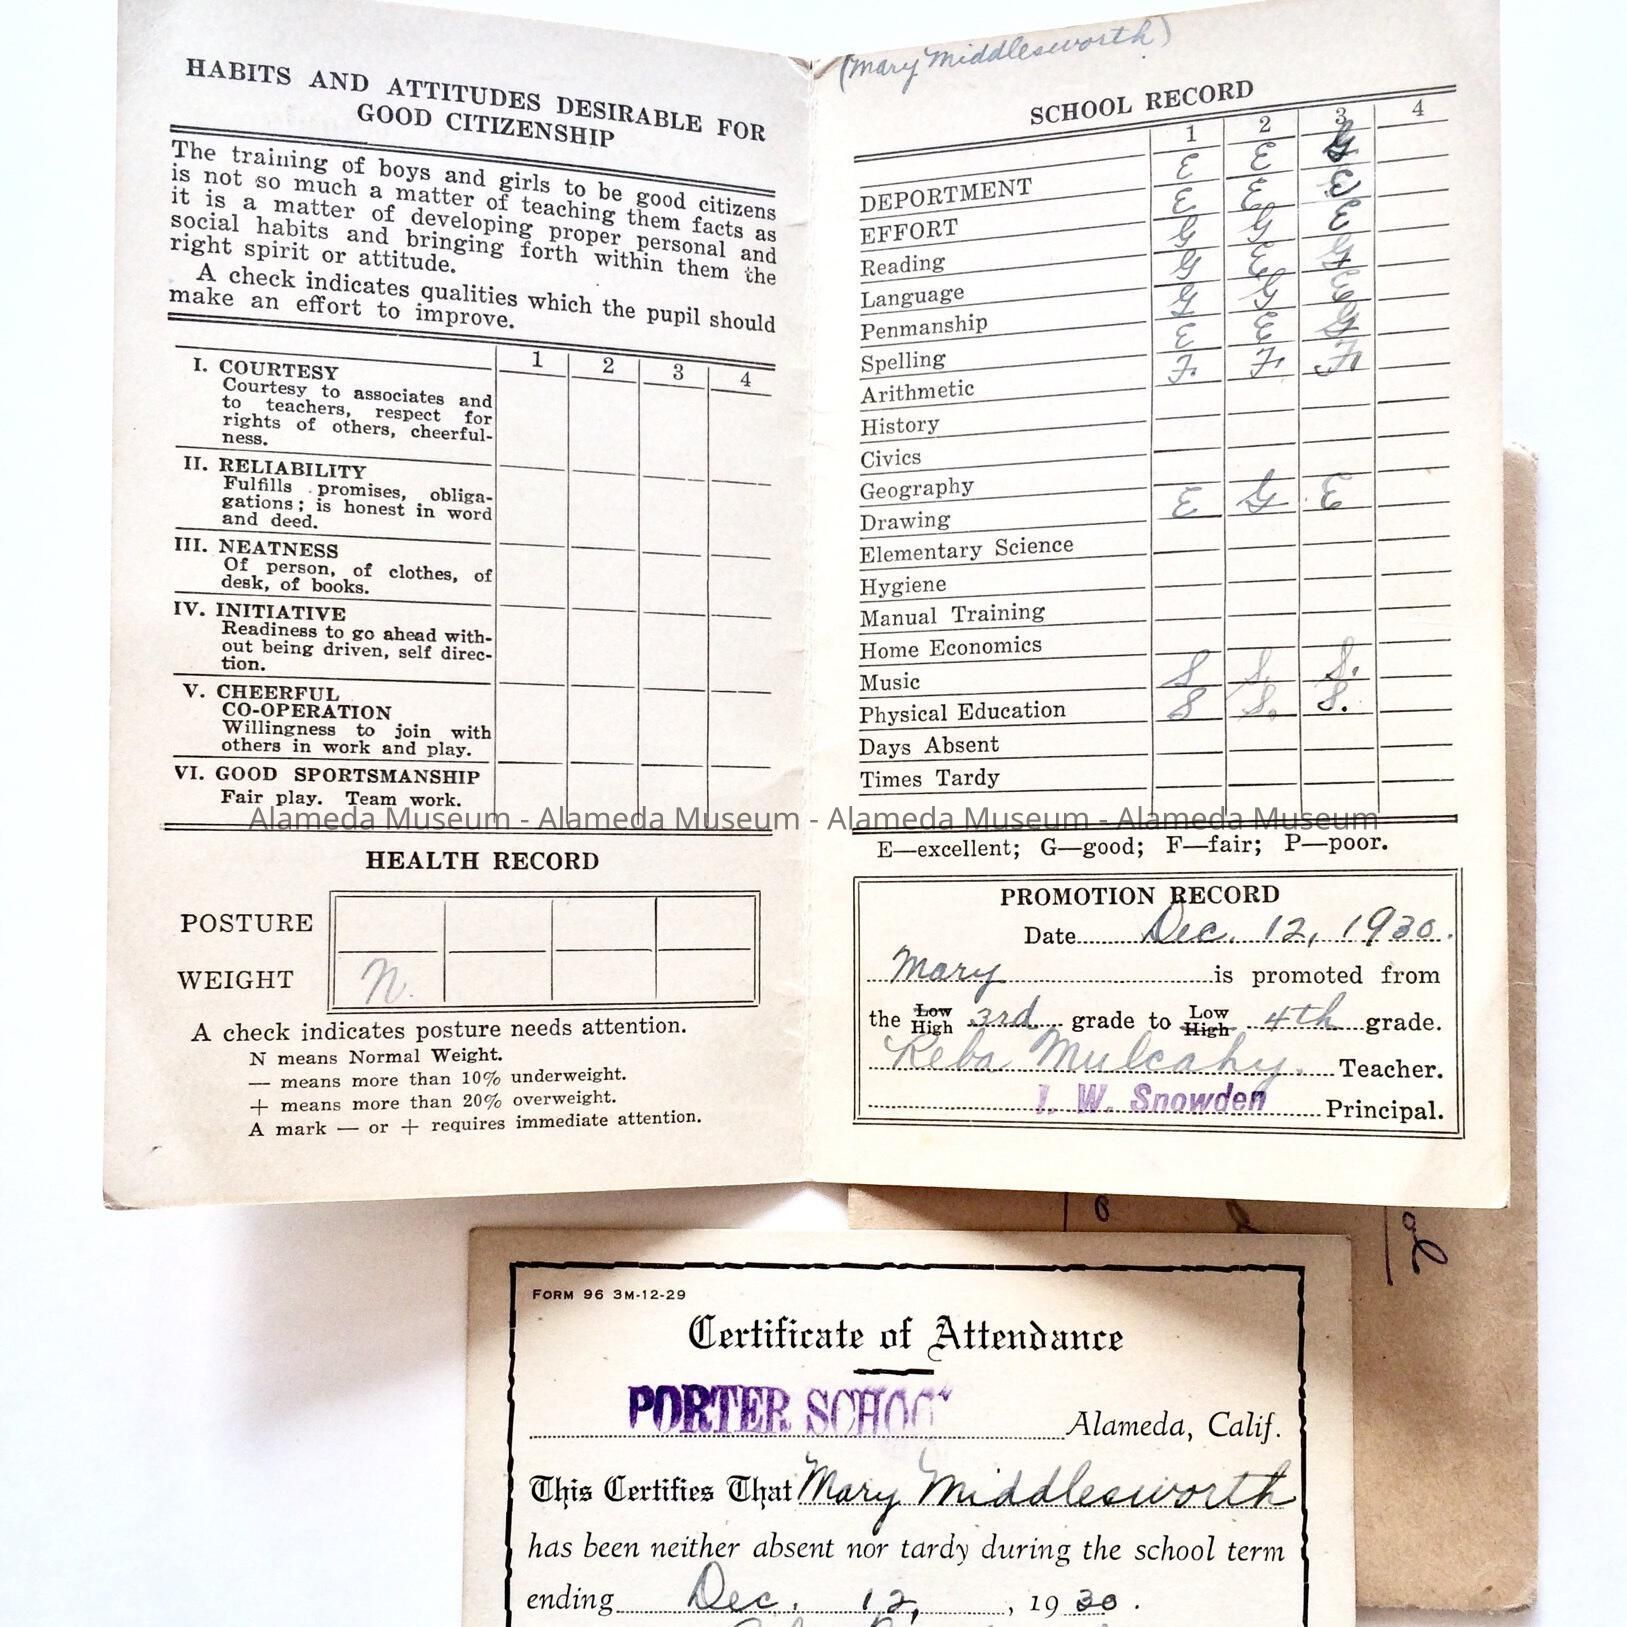 HABITS AND ATTITUDES DESIRABLE FOR
GOOD CITIZENSHIP
The training of boys and girls to be good citizens
is not so much a matter of teaching them facts as
it is a matter of developing proper personal and
social habits and bringing forth within them the
right spirit or attitude.
A check indicates qualities which the pupil should
make an effort to improve.
1 2 3 4
I. COURTESY
Courtesy to associates and
to teachers, respect for
rights of others, cheerful-
ness.
II. RELIABILITY
Fulfills promises, obliga-
gations; is honest in word
and deed.
III. NEATNESS
Of person, of clothes, of
desk, of books.
IV. INITIATIVE
Readiness to go ahead with-
out being driven, self direc-
tion.
V. CHEERFUL
CO-OPERATION
Willingness to join with
others in work and play.
VI. GOOD SPORTSMANSHIP
Fair play. Team work.
HEALTH RECORD
POSTURE
WEIGHT N.
A check indicates posture needs attention.
N means Normal Weight.
— means more than 10% underweight.
+ means more than 20% overweight.
A mark — or + requires immediate attention.
(Mary Middlesworth)
SCHOOL RECORD
1 2 3 4
DEPORTMENT E E G
EFFORT E E E
Reading G G E
Language G E G
Penmanship G G E
Spelling E E G
Arithmetic F. F. F.
History
Civics
Geography
Drawing E G E
Elementary Science
Hygiene
Manual Training
Home Economics
Music S S. S.
Physical Education S S. S.
Days Absent
Times Tardy
E—excellent; G—good; F—fair; P—poor.
PROMOTION RECORD
Date Dec. 12, 1930.
Mary is promoted from
the Low High 3rd grade to Low High 4th grade.
Reba Mulcahy. Teacher.
I. W. Snowden Principal.
Alameda Museum - Alameda Museum - Alameda Museum - Alameda Museum
FORM 96 3M-12-29
Certificate of Attendance
PORTER SCHOOL Alameda, Calif.
This Certifies That Mary Middlesworth
has been neither absent nor tardy during the school term
ending Dec. 12, , 1930.